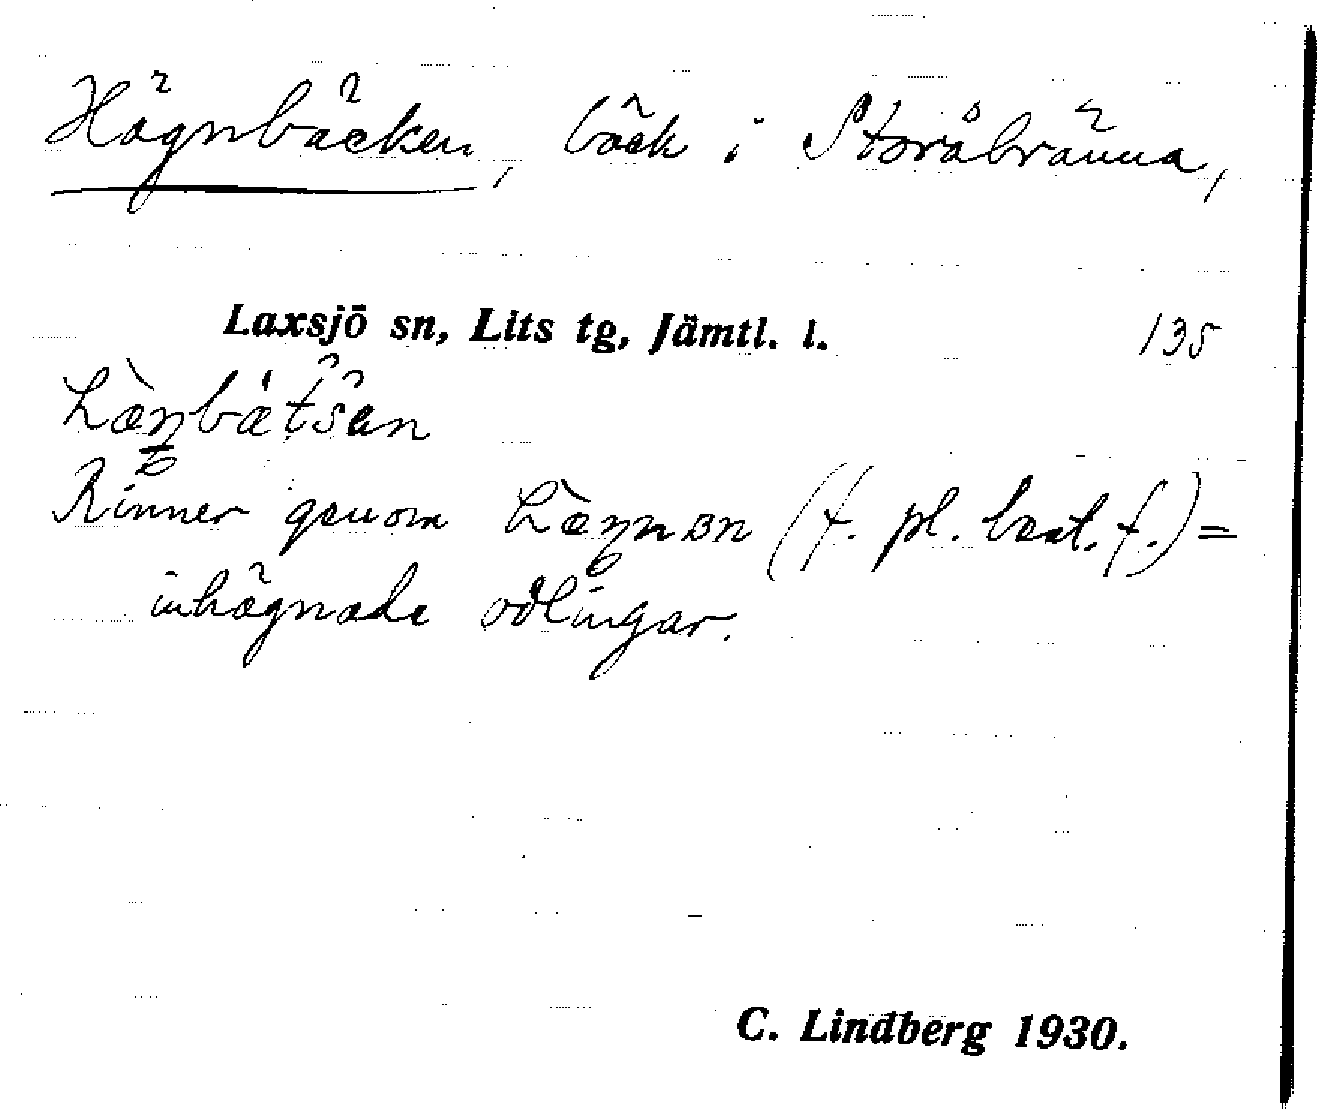 Hägnbäcken, bäck i Storåbränna,
Laxsjö sn, Lits tg, Jämtl. l. 135
Rinner genom (f. pl. best. f.) =
inhägnade odlingar.
C. Lindberg 1930.